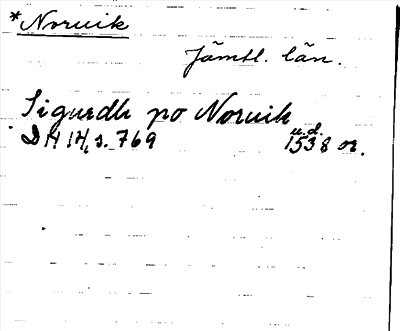 *Norvik
Jämtl. län.
Sigurdh po Norvik
DH 14, s. 769 u.d. 1538 or.